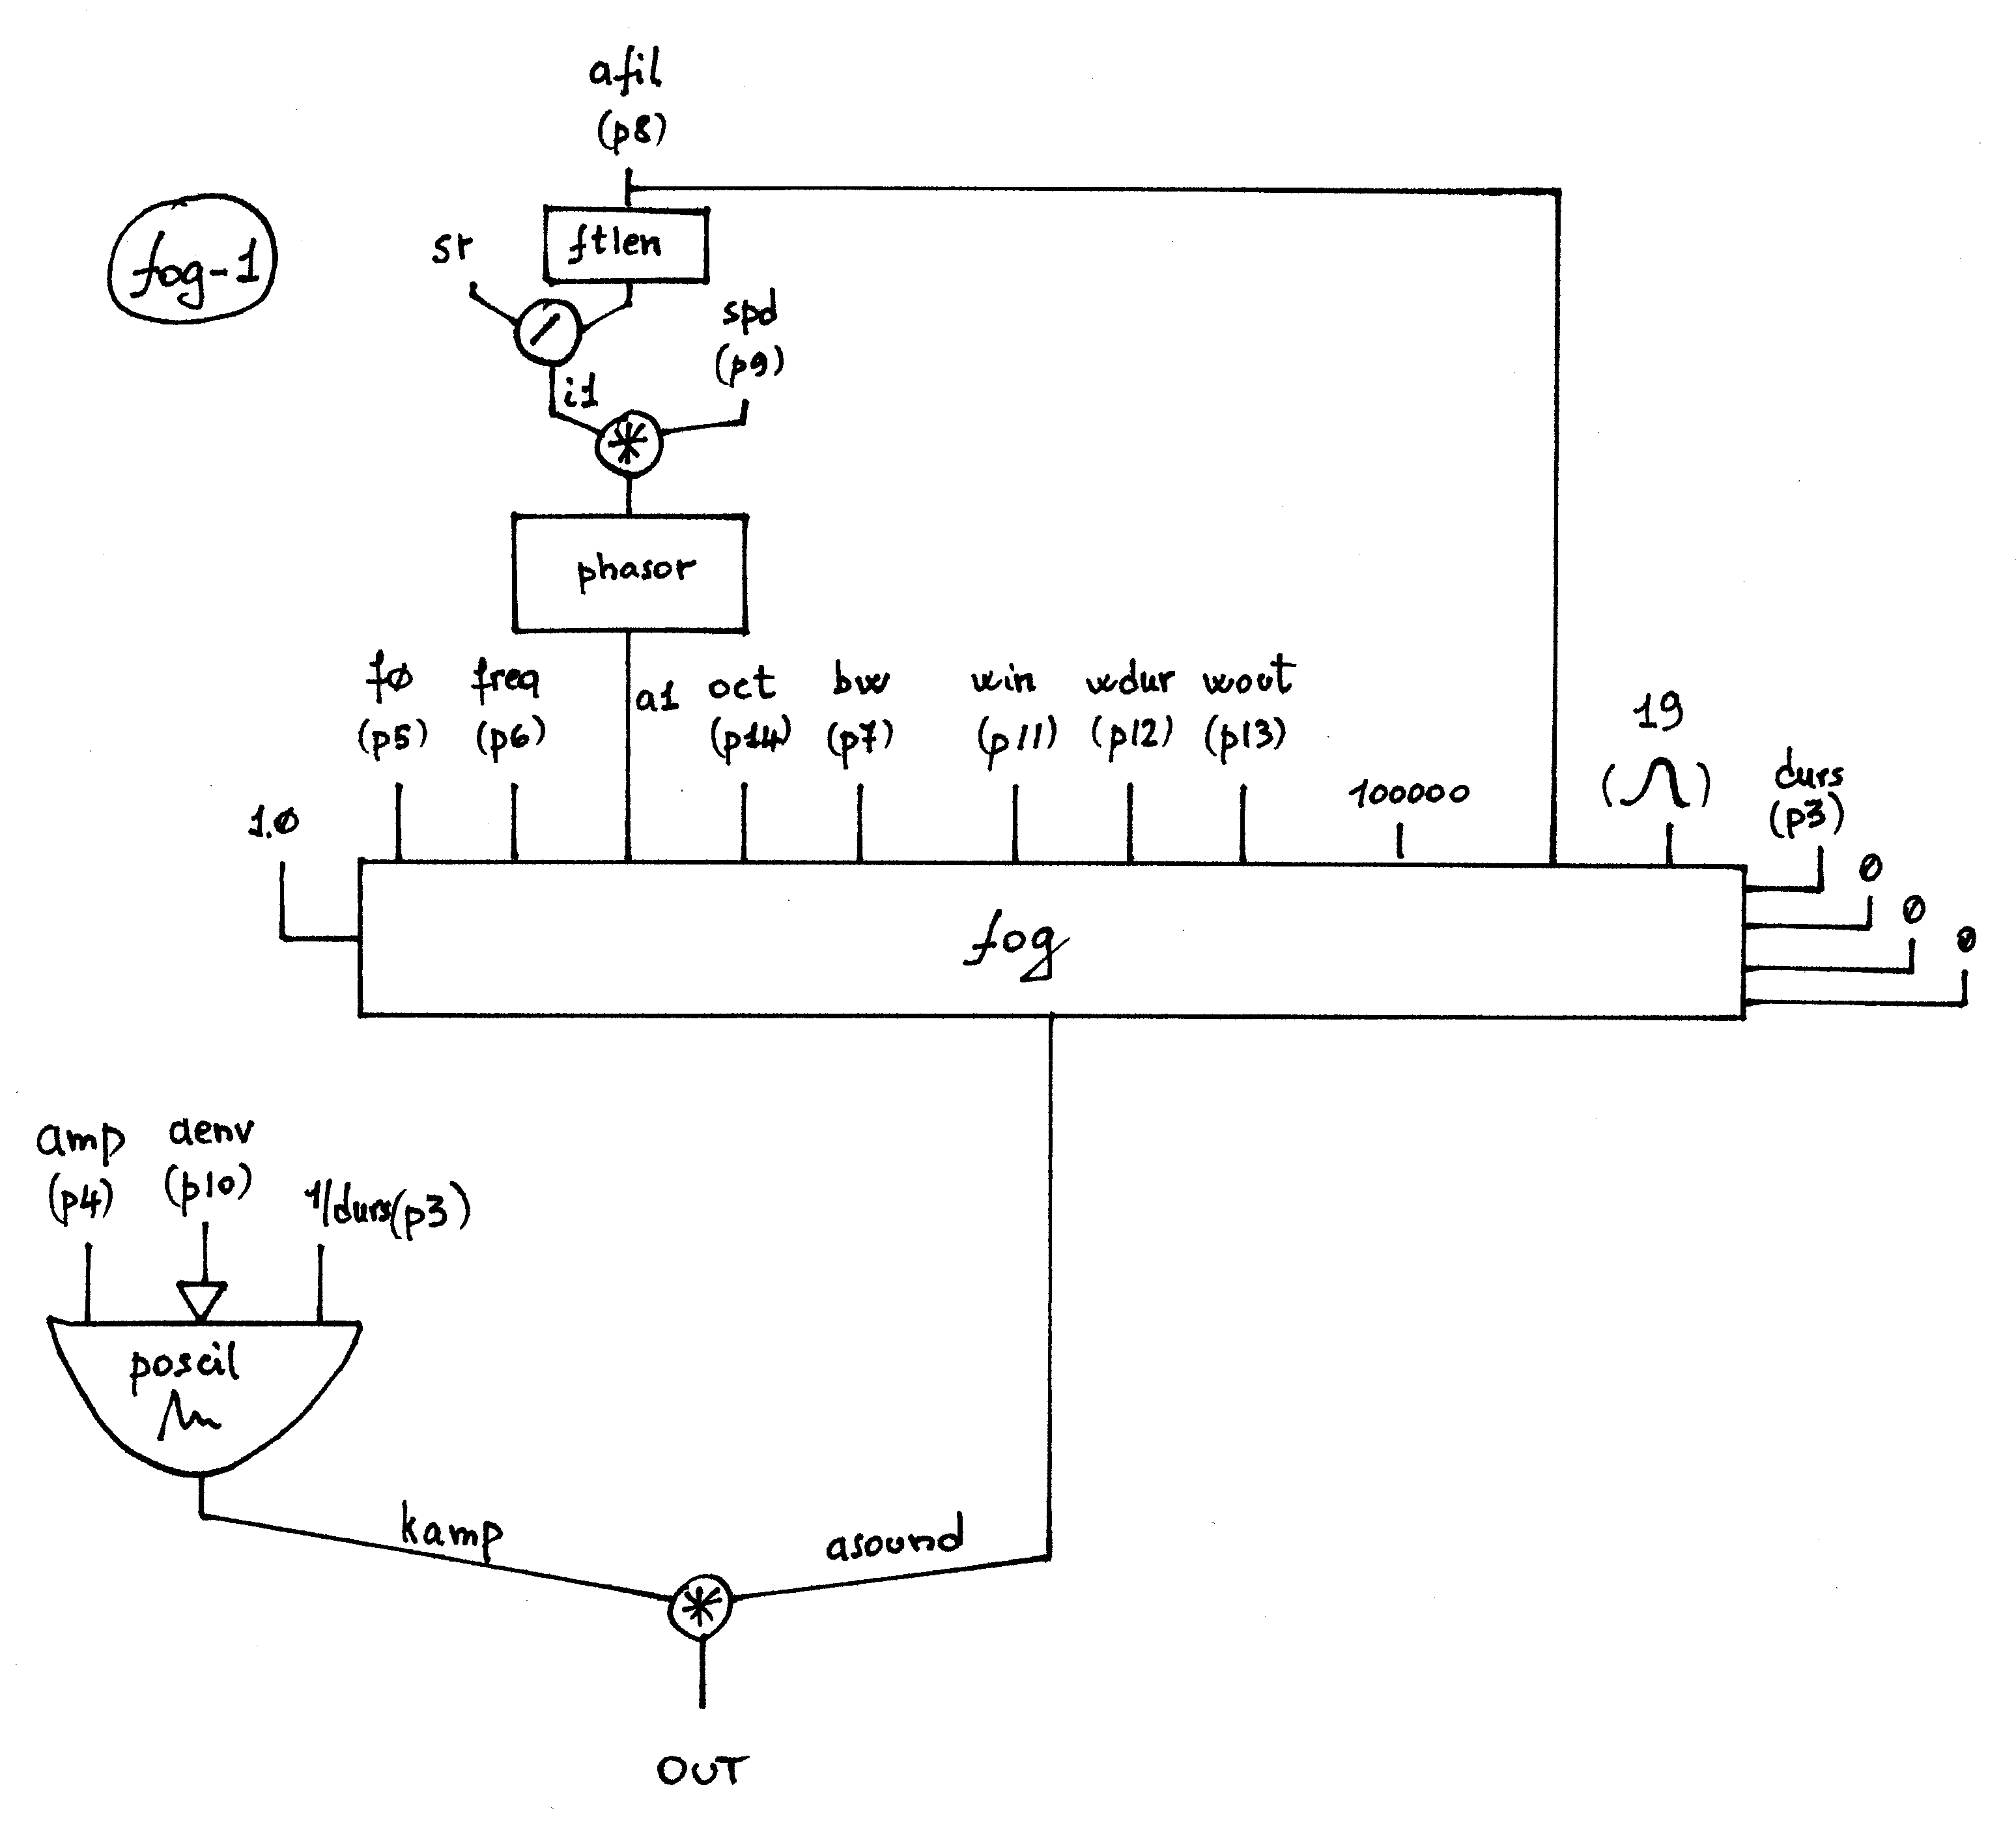 afil
(p8)
fog-1
sr
ftlen
/
spd
(p9)
i1
*
phasor
fø
(p5)
freq
(p6)
a1
oct
(p14)
bw
(p7)
win
(p11)
wdur
(p12)
wout
(p13)
100000
19
( )
durs
(p3)
1.ø
ø
ø
ø
fog
amp
(p4)
aenv
(p10)
1/durs(p3)
poscil
kamp
asound
*
OUT